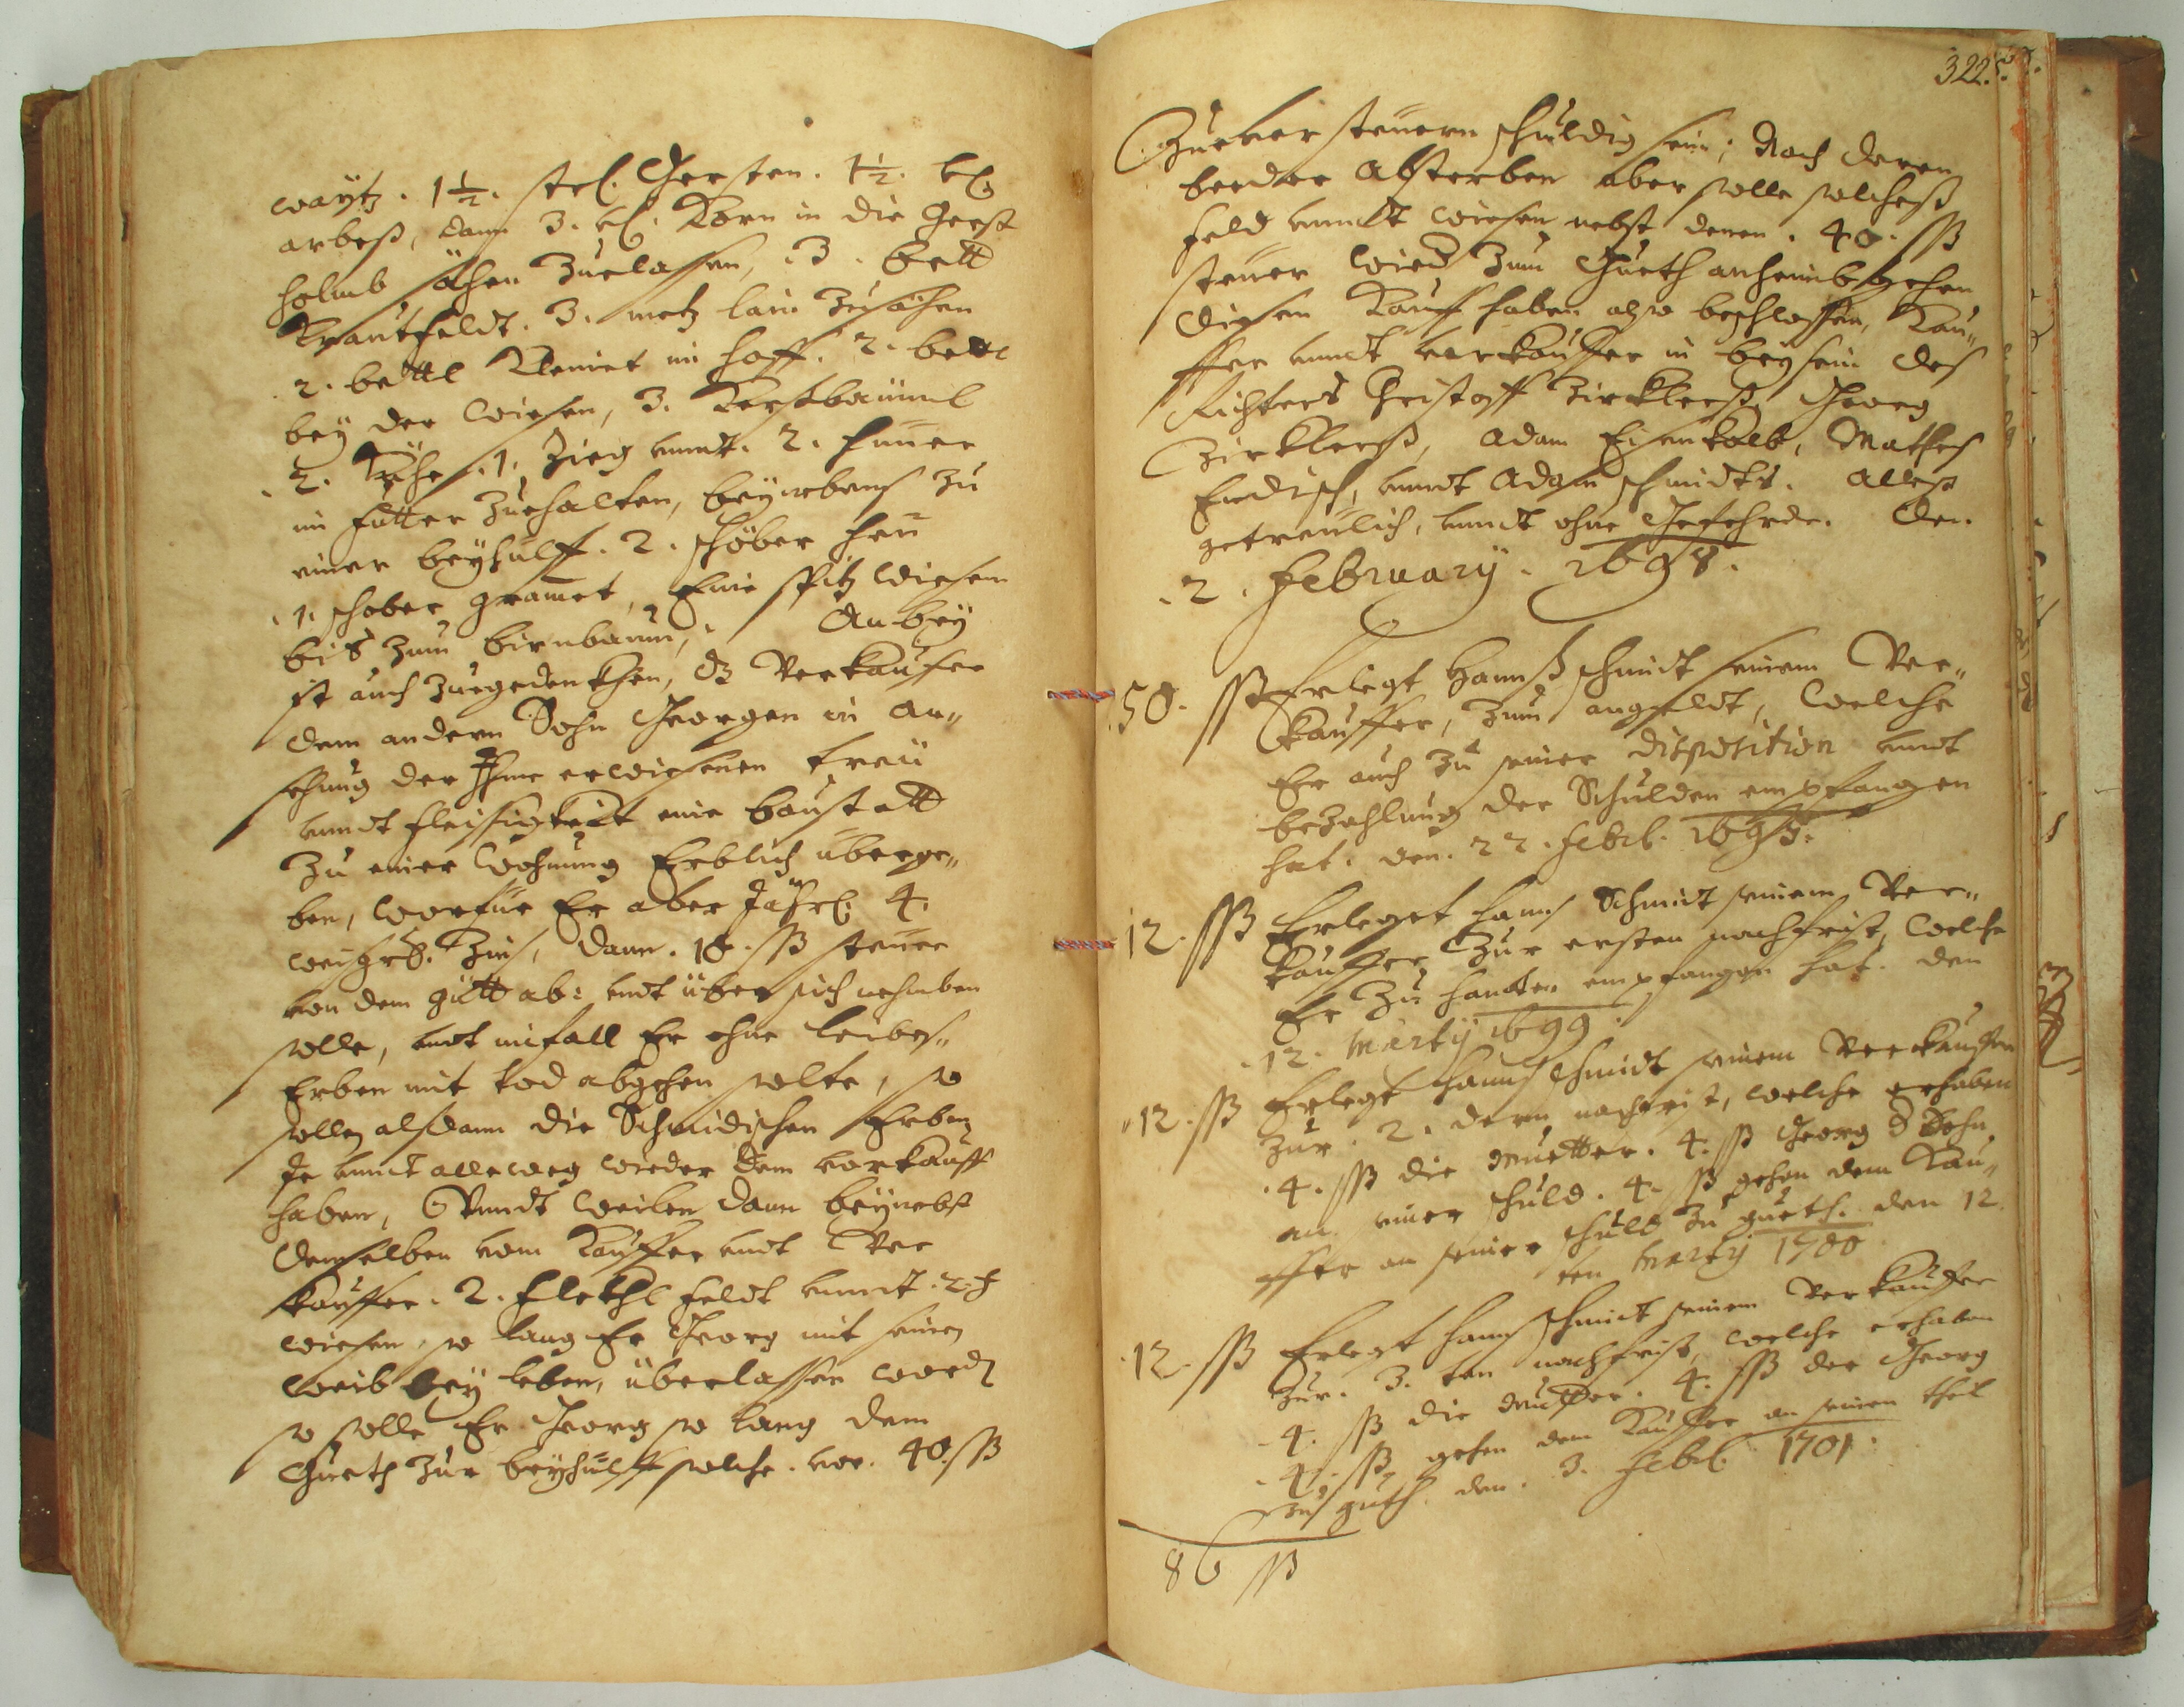 waytz. 1½. strl. Gersten. 1½. vl.
arbeß, dann 3. vl. Korn in die Gerst
holmb sähen zuelassen, 3. bett
Krautfeldt. 3. metz lein zu sähen
2. bettl Kleniet im hoff. 2. bettl
bey der wiesen, 3. Kerschbäuml
2. Kühe. 1. Zieg vnndt. 2. hüner
im futter zuehalten, beynebens zu
einer beyhülff. 2. schöber heu
1. schober gramet, Eine spitz wiesen
biß zum birnbaum, Anbey
ist auch zuegedenkhen, dz Verkaufer
dem andern Sohn Georgen in an„
sehung der Ihme erwiesenen treü
vnndt fleissigkeit eine baustatt
zu einer wohnung Erblich überge„
ben, worfür Er aber Jährl. 4.
weißgr. Zinß, dann. 18. ßß steuer
von dem gutt ab: vndt über sich nehmben
solle, vndt imfall Er ohne leibes„
Erben mit tod abgehen solte, so
sollen alsdann die Schmidischen Erben
Je vnndt alleweg wieder dem vorkauff
haben, Vnndt weilen dann beynebst
demselben vom Kauffer vndt Ver
kauffer. 2. flekhl feldt vnndt. 2.
wiesen, so lang Er Georg mit seinen
weib bey leben, überlassen word
so solle Er Georg so lang dem
Gueth zur beyhülff solche. vor. 40. ßß
322.
Zuever steuern schuldig sein; Nach deren
beeder Absterben aber solle solches
feld vnndt wiesen nebst denen. 40. ßß
steuer wied zum Gueth anheimbgehen
diesen Kauff haben also beschlossen, Kau„
ffer vnndt verkauffer in beysein deß
Richters Christoff Zirklerß, Georg
Zirklerß, Adam Eisenkolb, Mathes
Endisch, vnndt Adam Schmidts. Alles
getreulich, vnndt ohne Gefehrde. Den.
2. February. 1698.
50. ßß Erlegt Hannß schmidt seinem Ver„
kauffer, zum angeldt, welche
Er auch zu seiner disposition vnndt
bezahlung der Schulden empfangen
hat. den. 22. febr. 1698.
12. ßß Erleget hanß Schmidt seinem Ver„
kauffer zur ersten nachfrist, welche
Er zu handen empfangen hat. den
12. marty 1699.
12. ßß Erlegt hanß schmidt seinem Verkauffer
zur. 2. dern nachfrist, welche erhaben
4. ßß die muetter. 4. ßß Georg d Sohn
an einer schuld. 4. ßß gehen dem Kau„
ffer an seiner schuld zu gueth. den 12
ten marty 1700
12. ßß Erlegt hanß schmidt seinem Verkauffer
zur. 3. ten nachfrist, welche erhaben
4. ßß die mutter. 4. ßß der Georg
4. ßß gehen dem Kauffer an seinen theil
zu guth. den. 3. febr. 1701.
86 ßß